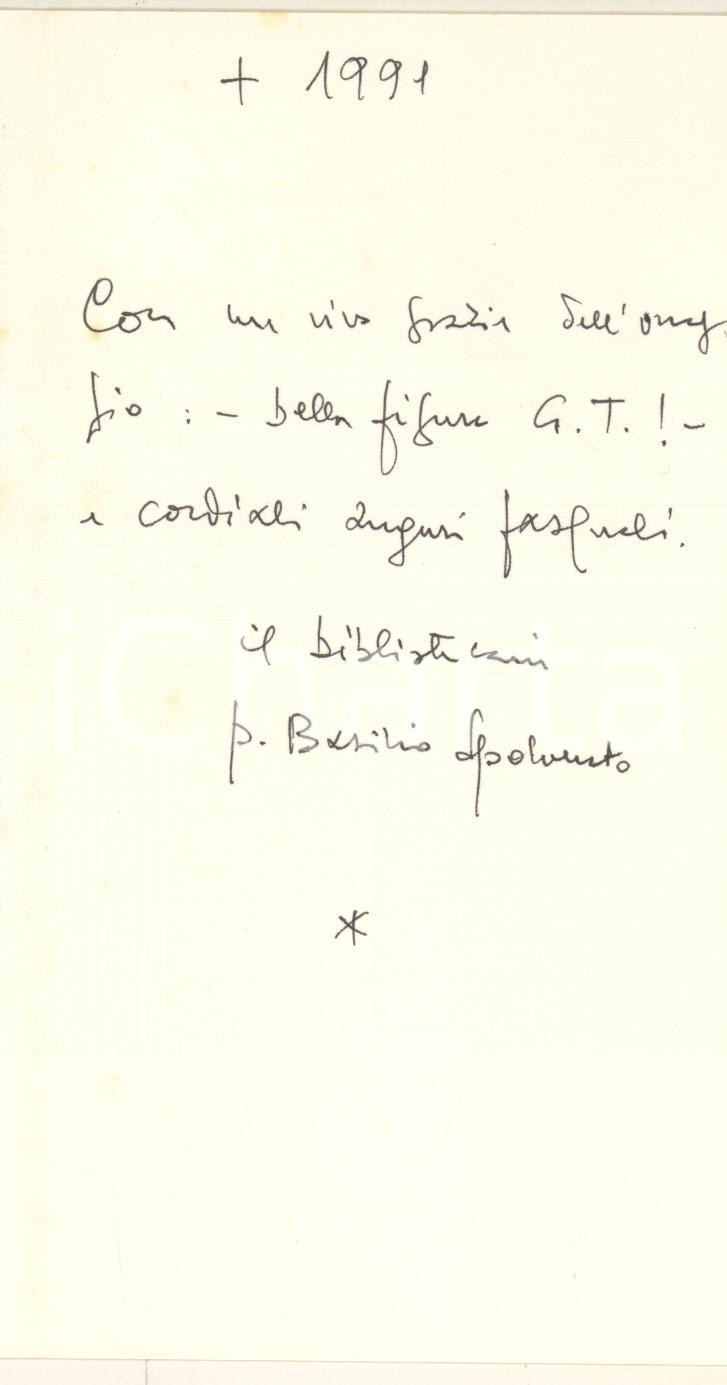 + 1991
Con un vivo grazie dell'omag
gio : - bella figura G.T. ! -
e cordiali auguri pasquali.
il bibliotecario
p. Basilio
*